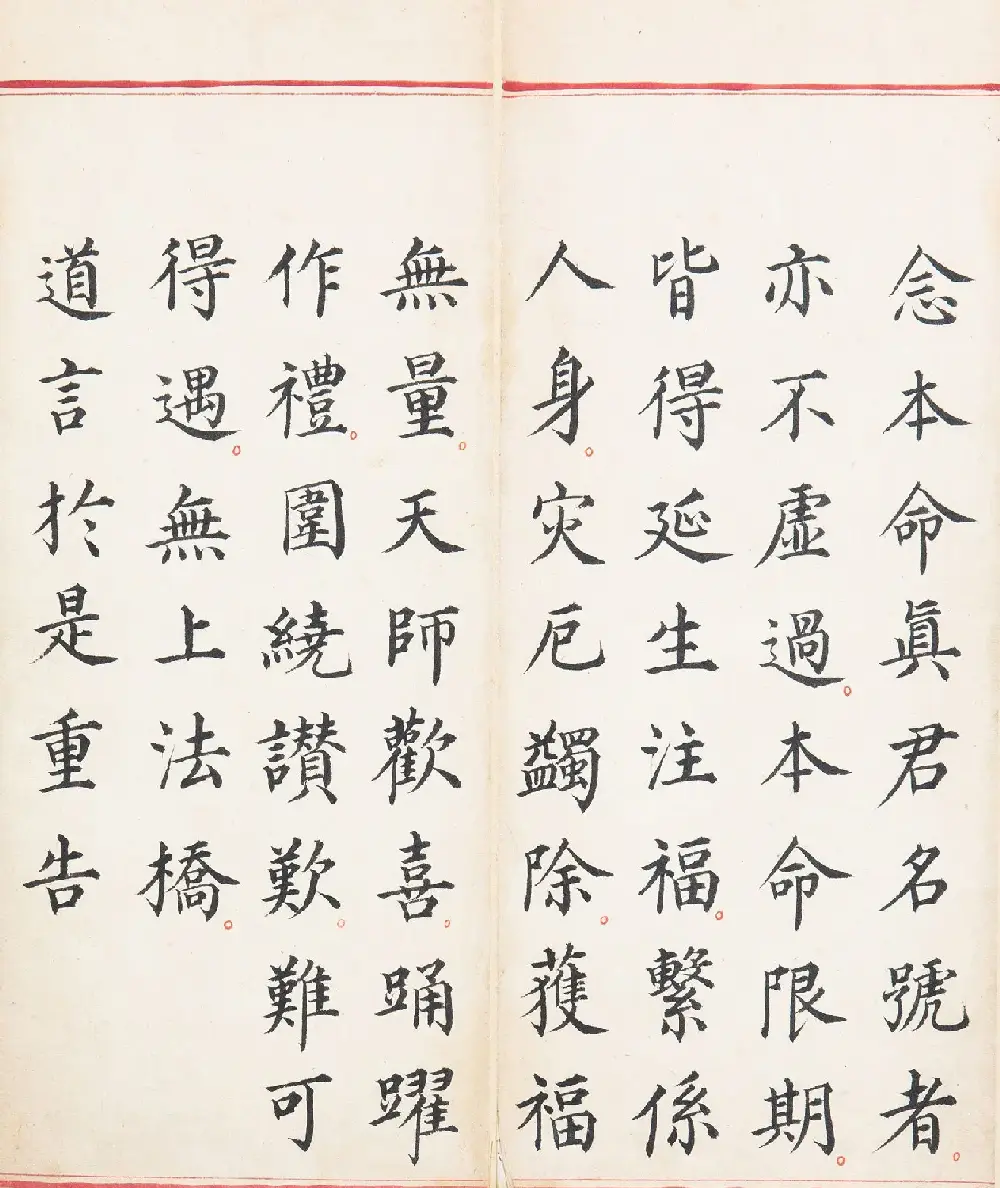 念本命眞君名號者。
亦不虛過。本命限期。
皆得延生注福。繫係
人身。灾厄蠲除。獲福
無量。天師歡喜。踊躍
作禮。圍繞讃歎。難可
得遇。無上法橋。
道言於是重告